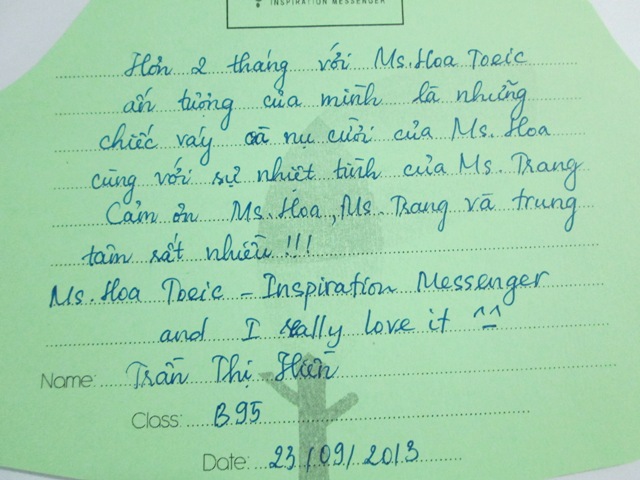 INSPIRATION MESSENGER
Hơn 2 tháng với Ms.Hoa Toeic
ấn tượng của mình là những
chiếc váy và nụ cười của Ms. Hoa
cùng với sự nhiệt tình của Ms. Trang
Cảm ơn Ms. Hoa, Ms. Trang và trung
tâm rất nhiều !!!
Ms. Hoa Toeic - Inspiration Messenger
and I really love it ^_^
Name: Trần Thị Hiền
Class: B95
Date: 23/09/2013